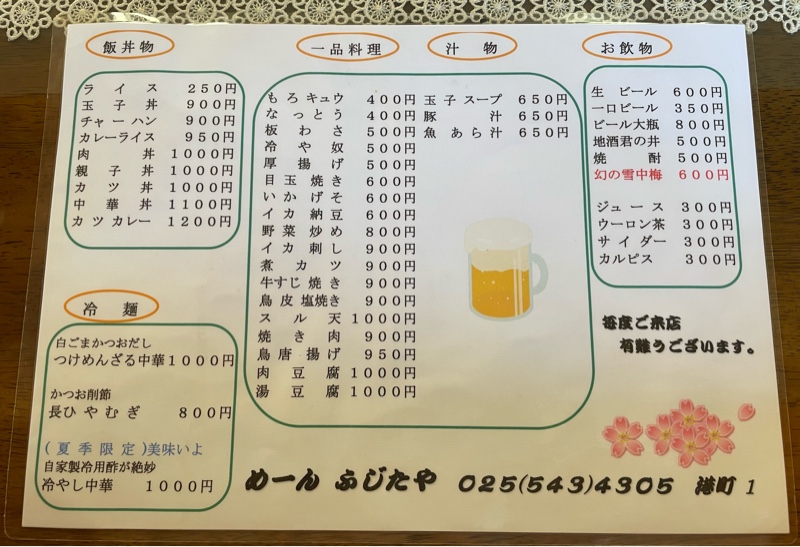 飯丼物
ライス 250円
玉子丼 900円
チャーハン 900円
カレーライス 950円
肉丼 1000円
親子丼 1000円
カツ丼 1000円
中華丼 1100円
カツカレー 1200円
冷麺
白ごまかつおだし
つけめんざる中華 1000円
かつお削節
長ひやむぎ 800円
(夏季限定)美味いよ
自家製冷用酢が絶妙
冷やし中華 1000円
一品料理
もろキュウ 400円
なっとう 400円
板わさ 500円
冷や奴 500円
厚揚げ 500円
目玉焼き 600円
いかげそ 600円
イカ納豆 600円
野菜炒め 800円
イカ刺し 900円
煮カツ 900円
牛すじ焼き 900円
鳥皮塩焼き 900円
スル天 1000円
焼き肉 900円
鳥唐揚げ 950円
肉豆腐 1000円
湯豆腐 1000円
汁物
玉子スープ 650円
豚汁 650円
魚あら汁 650円
お飲物
生ビール 600円
一口ビール 350円
ビール大瓶 800円
地酒君の井 500円
焼酎 500円
幻の雪中梅 600円
ジュース 300円
ウーロン茶 300円
サイダー 300円
カルピス 300円
毎度ご来店
有難うございます。
めーん ふじたや 025(543)4305 港町1